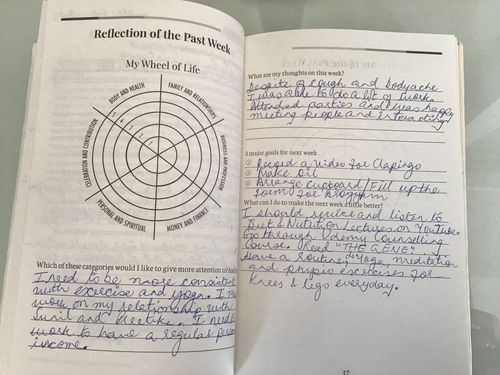 Reflection of the Past Week
My Wheel of Life
BODY AND HEALTH
FAMILY AND RELATIONSHIPS
BUSINESS AND PROFESSION
MONEY AND FINANCE
PERSONAL AND SPIRITUAL
CELEBRATION AND CONTRIBUTION
Which of these categories would I like to give more attention to
I need to be more consistent
with exercise and yoga. I
work on my relationship with
Sunil and I need
work to have a regular
income.
What are my thoughts on this week?
Despite of cough and bodyache
I was able to do a lot of work.
Attended parties and was happy
meeting people and interacting
3 major goals for next week
① Record a video for
② Make Oil
③ Arrange cupboard/Fill up the
form for program
What can I do to make the next week a little better?
I should and listen to
Diet & Nutrition Lectures on YouTube
Go through Udemy Counselling
Course. Read "THE GENE"
Have a Routine Yoga, meditation
and physio exercises for
Knees & legs everyday.
57